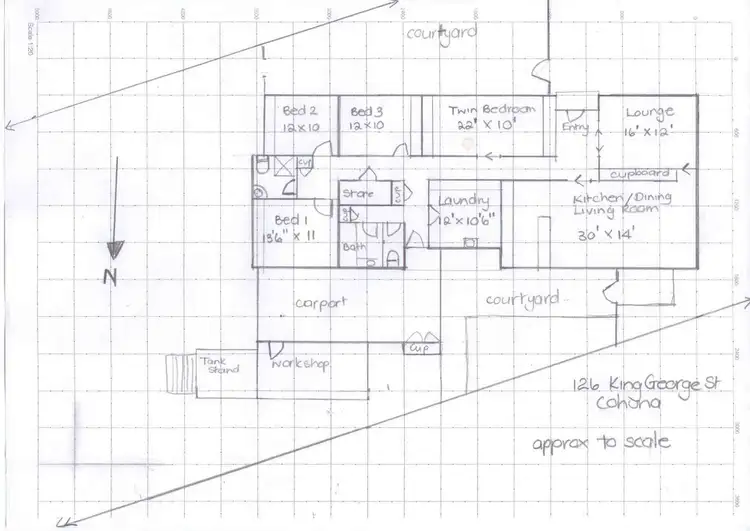 Scale 1:20
courtyard
Bed 2
12x10
Bed 3
12x10
Twin Bedroom
22' X 10'
Entry
Lounge
16' X 12'
cup
cupboard
Store
Laundry
12' x 10'6"
Kitchen/Dining
Living Room
30' X 14'
Bed 1
13'6" x 11
Bath
N
carport
courtyard
cup
Tank
Stand
workshop
126 King George St
Cohuna
approx to scale